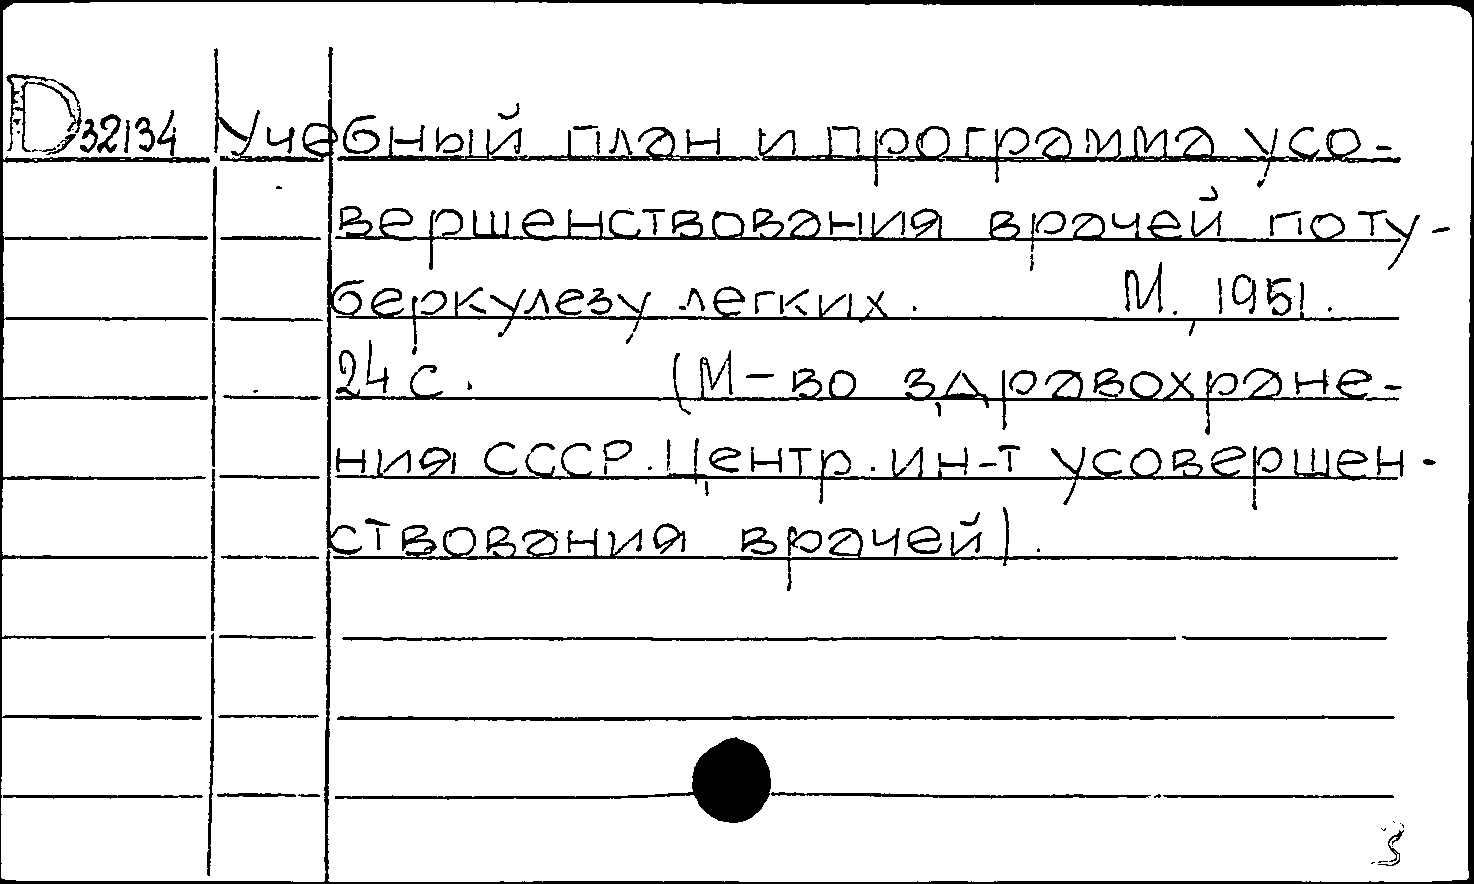 D32134 Учебный план и программа усо-
вершенствования врачей по ту-
беркулезу легких. М., 1951.
24 с. (М-во здравохране-
ния СССР. Центр. ин-т усовершен-
ствования врачей).
3